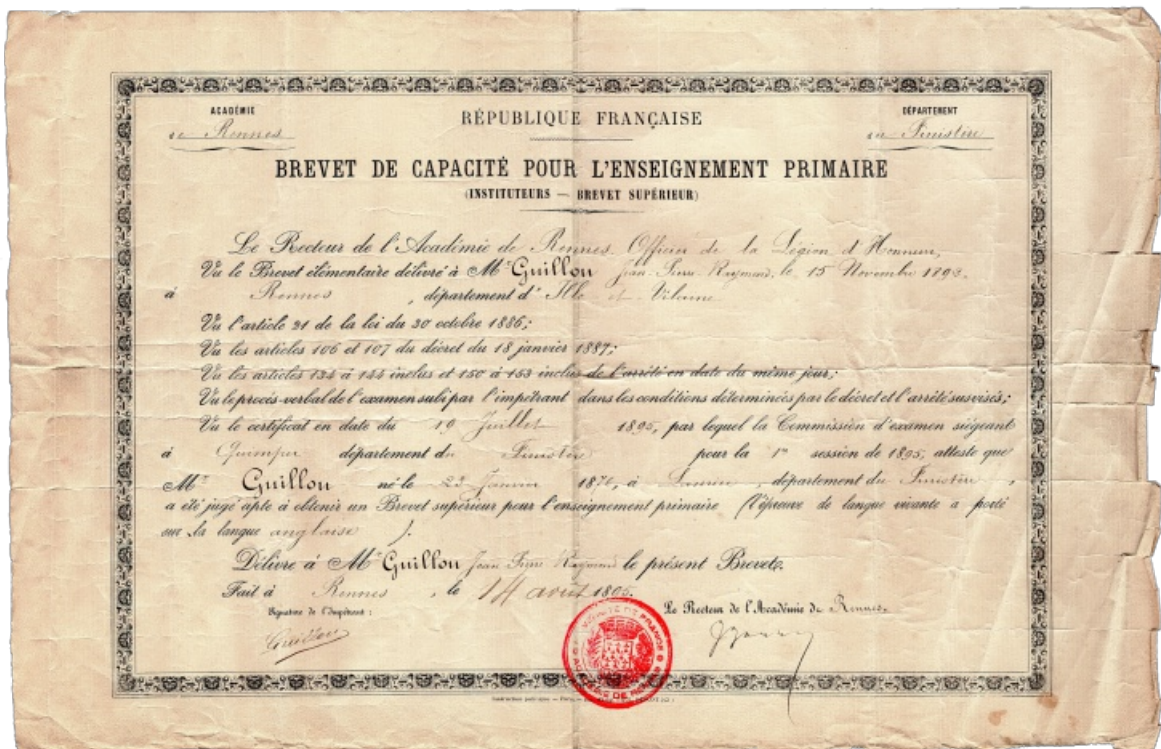 ACADÉMIE
de Rennes
RÉPUBLIQUE FRANÇAISE
DÉPARTEMENT
du Finistère
BREVET DE CAPACITÉ POUR L'ENSEIGNEMENT PRIMAIRE
(INSTITUTEURS — BREVET SUPÉRIEUR)
Le Recteur de l'Académie de Rennes, Officier de la Légion d'Honneur,
Vu le Brevet élémentaire délivré à Mr Guillon Jean-Pierre-Raymond, le 15 Novembre 1893,
à Rennes, département d'Ille et Vilaine
Vu l'article 21 de la loi du 30 octobre 1886;
Vu les articles 106 et 107 du décret du 18 janvier 1887;
Vu les articles 134 à 144 inclus et 150 à 153 inclus de l'arrêté en date du même jour;
Vu le procès-verbal de l'examen subi par l'impétrant dans les conditions déterminées par le décret et l'arrêté susvisés;
Vu le certificat en date du 19 Juillet 1895, par lequel la Commission d'examen siégeant
à Quimper département du Finistère pour la 1re session de 1895, atteste que
Mr Guillon né le 23 Janvier 1876, à département du Finistère,
a été jugé apte à obtenir un Brevet supérieur pour l'enseignement primaire (l'épreuve de langue vivante a porté
sur la langue anglaise ).
Délivre à Mr Guillon Jean Pierre Raymond le présent Brevet.
Fait à Rennes, le 14 août 1895.
Signature de l'impétrant :
Guillon
Le Recteur de l'Académie de Rennes,